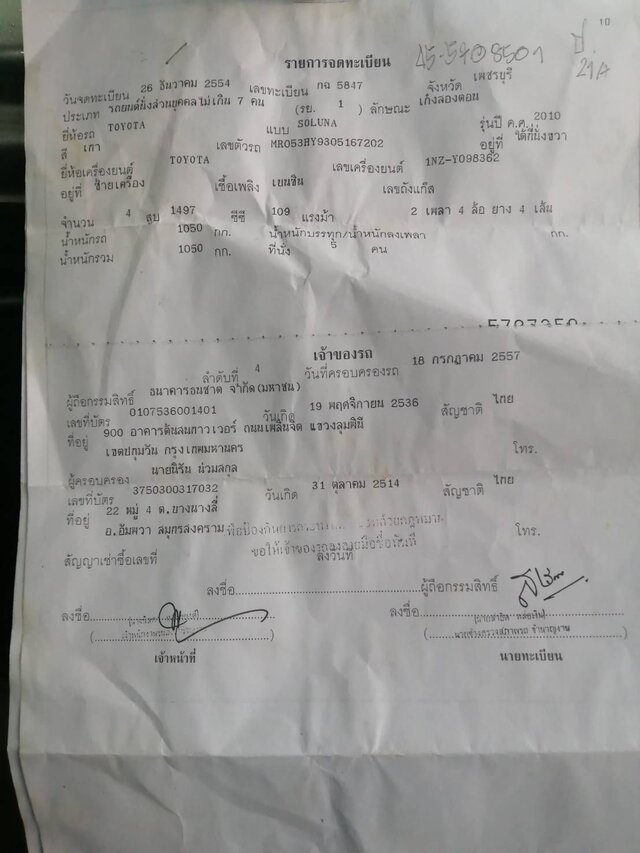 10
รายการจดทะเบียน 45-57008501 ป.
21A
วันจดทะเบียน 26 ธันวาคม 2554 เลขทะเบียน กฉ 5847 จังหวัด เพชรบุรี
ประเภท รถยนต์นั่งส่วนบุคคลไม่เกิน 7 คน (รย. 1) ลักษณะ เก๋งสองตอน
ยี่ห้อรถ TOYOTA แบบ SOLUNA รุ่นปี ค.ศ. 2010
สี เทา เลขตัวรถ MR053HY9305167202 อยู่ที่ ใต้ที่นั่งขวา
ยี่ห้อเครื่องยนต์ TOYOTA เลขเครื่องยนต์ 1NZ-Y098362
อยู่ที่ ซ้ายเครื่อง เชื้อเพลิง เบนซิน เลขถังแก๊ส
จำนวน 4 สูบ 1497 ซีซี 109 แรงม้า 2 เพลา 4 ล้อ ยาง 4 เส้น
น้ำหนักรถ 1050 กก. น้ำหนักบรรทุก/น้ำหนักลงเพลา กก.
น้ำหนักรวม 1050 กก. ที่นั่ง 5 คน
เจ้าของรถ
ลำดับที่ 4 วันที่ครอบครองรถ 18 กรกฎาคม 2557
ผู้ถือกรรมสิทธิ์ ธนาคารธนชาต จำกัด(มหาชน)
เลขที่บัตร 0107536001401 วันเกิด 19 พฤศจิกายน 2536 สัญชาติ ไทย
ที่อยู่ 900 อาคารต้นสนทาวเวอร์ ถนนเพลินจิต แขวงลุมพินี
เขตปทุมวัน กรุงเทพมหานคร โทร.
ผู้ครอบครอง นายนิรัน น่วมสกุล
เลขที่บัตร 3750300317032 วันเกิด 31 ตุลาคม 2514 สัญชาติ ไทย
ที่อยู่ 22 หมู่ 4 ต.ยางนางลี่
อ.อัมพวา สมุทรสงคราม โทร.
สัญญาเช่าซื้อเลขที่ ลงวันที่
ขอให้เจ้าของรถลงลายมือชื่อทันที
ลงชื่อ ผู้ถือกรรมสิทธิ์
ลงชื่อ ลงชื่อ
(นายช่างตรวจสภาพรถ ชำนาญงาน)
เจ้าหน้าที่ นายทะเบียน